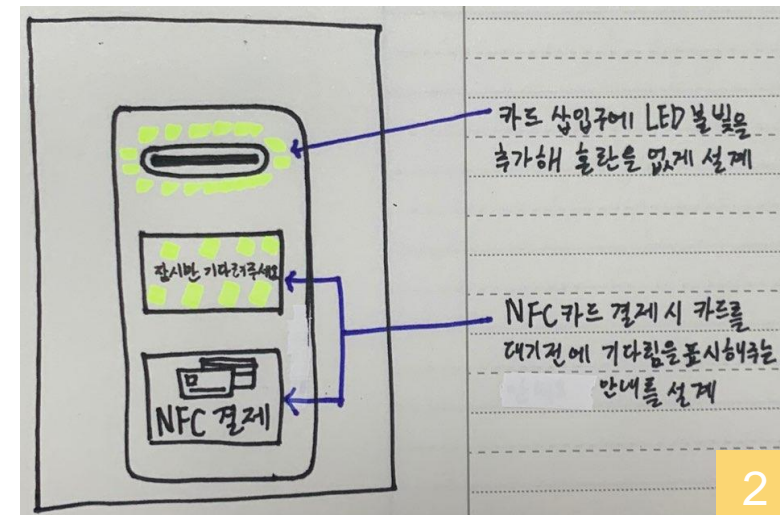 카드 삽입구에 LED 불빛을
추가해 혼란을 없게 설계
잠시만 기다려주세요
NFC 카드 결제 시 카드를
대기전에 기다림을 표시해주는
안내를 설계
NFC 결제
2